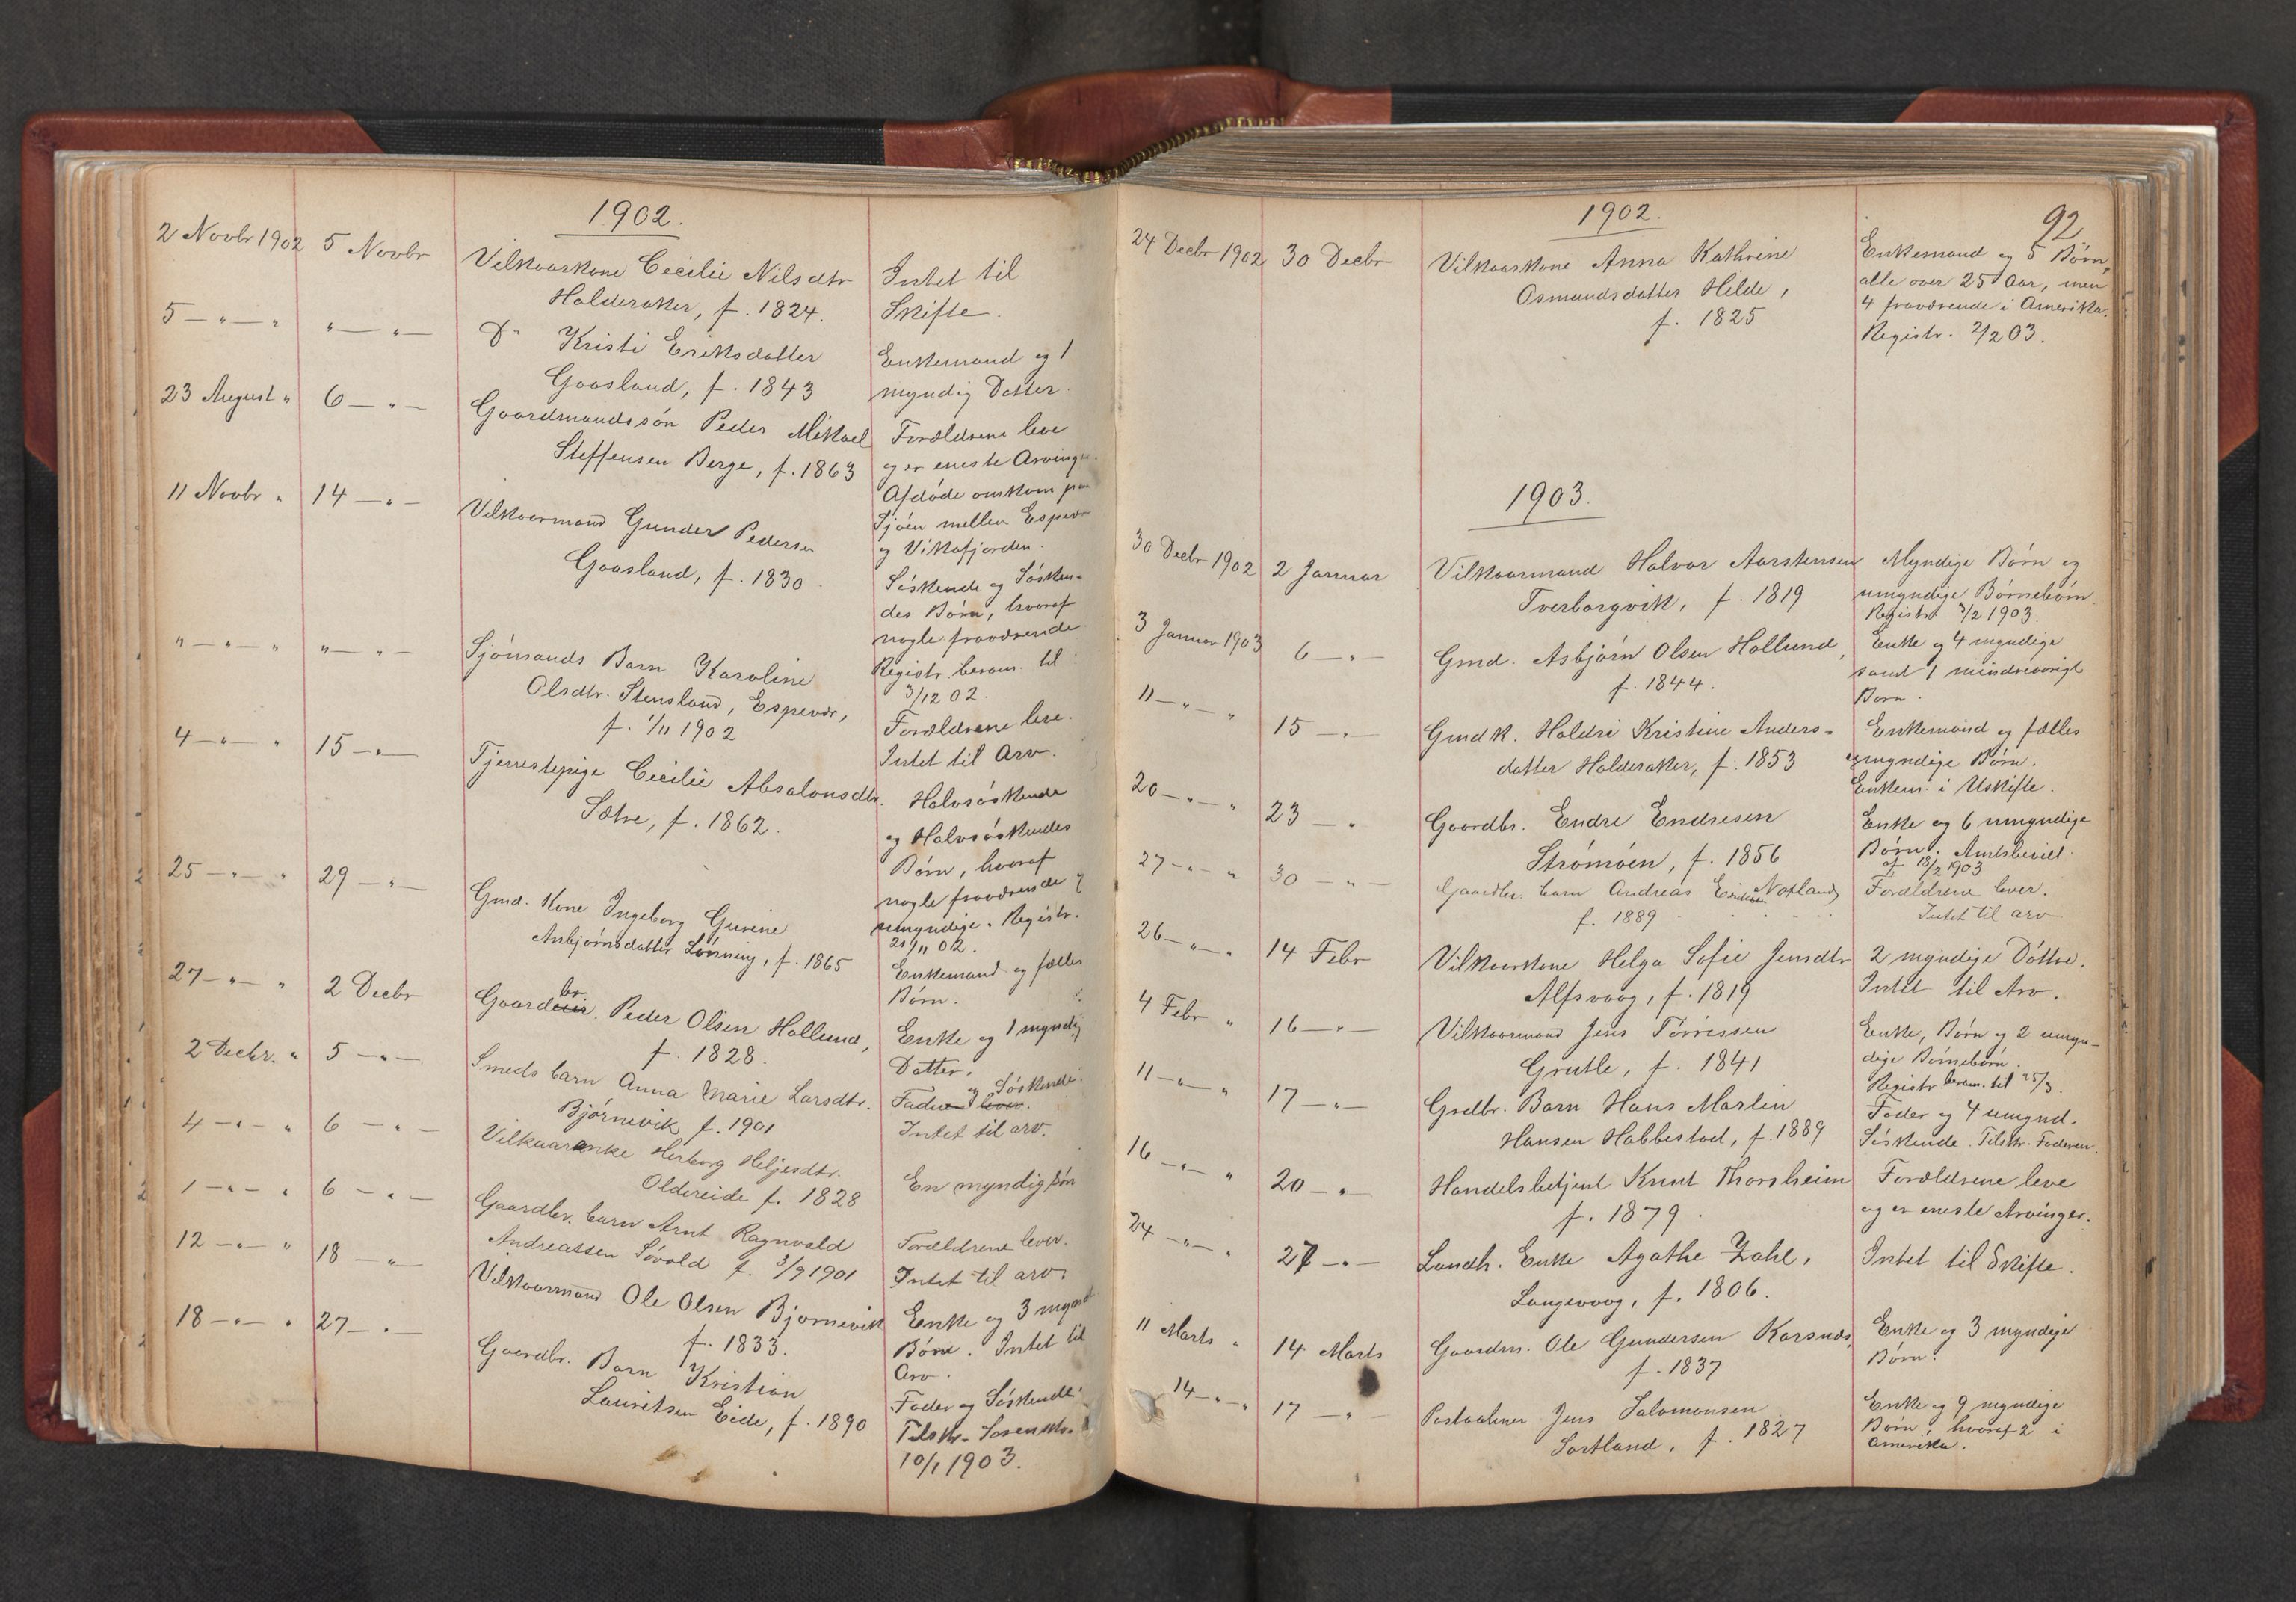 1902.
2 Novbr 1902 5 Novbr Vilkaarskone Cecilie Nilsdtr Intet til
Halderaker, f. 1824. Skifte.
5 — " — " " — " — Do Kristi Eriksdatter Enkemand og 1
Gaasland, f. 1843 myndig Datter.
23 August " 6 — " — Gaardmandssøn Peder Mikael Forældrene leve
Steffensen Berge, f. 1863 og er eneste Arvinger.
Afdøde omkom paa
Sjøen mellem Espevær
og Vikafjorden.
11 Novbr " 14 — " — Vilkaarmand Gunder Pedersen
Gaasland, f. 1830. Søskende og Søsken-
des Børn, hvoraf
nogle fraværende
Registr. beram. til
3/12 02.
" — " — " " — " — Sjømands Barn Karoline
Olsdtr. Stensland, Espevær, Forældrene leve.
f. 1/11 1902 Intet til Arv.
4 — " — " 15 — " — Tjenestepige Cecilie Absalonsdtr. Halvsøskende
Sætre, f. 1862. og Halvsøskendes
Børn, hvoraf
nogle fraværende og
umyndige. Registr.
21/11 02.
25 — " — " 29 — " — Gmd. Kone Ingeborg Gurine
Asbjørnsdatter Lønning, f. 1865 Enkemand og fælles
Børn.
27 — " — " 2 Decbr Gaardbr. Peder Olsen Hollund, Enke og 1 myndig
f. 1828. Datter.
2 Decbr. " 5 — " — Smeds barn Anna Marie Larsdtr. Fader og Søskende.
Bjørnevik f. 1901 Intet til arv.
4 — " — " 6 — " — Vilkaarenke Herborg Heljesdtr.
Oldereide f. 1828 En myndig søn
1 — " — " 6 — " — Gaardbr. barn Arnt Ragnvald Forældrene lever.
Andreassen Søvold f. 3/9 1901 Intet til arv
12 — " — " 18 — " Vilkaarmand Ole Olsen Bjørnevik Enke og 3 mynd
f. 1833. Børn. Intet til
Arv.
18 — " — " 27 — " — Gaardbr. Barn Kristian Fader og Søskende.
Lauritsen Eide, f. 1890 Tilskr.
10/1 1903.
1902. 92
24 Decbr 1902 30 Decbr Vilkaarskone Anna Kathrine Enkemand og 5 Børn,
Osmundsdatter Hilde, alle over 25 Aar, men
f. 1825 4 fraværende i Amerika.
Registr. 2/2 03.
1903.
30 Decbr 1902 2 Januar Vilkaarmand Halvor Aarstensen Myndige Børn og
Tverborgvik, f. 1819 umyndige Børnebørn.
Registr 3/2 1903.
3 Januar 1903 6 — " — Gmd. Asbjørn Olsen Hollund, Enke og 4 myndige
f. 1844. samt 1 mindreaarigt
Barn.
11 — " — " 15 — " — Gmdk. Haldri Kristine Anders- Enkemand og fælles
datter Halderaker, f. 1853 umyndige Børn.
Enkem. i Uskifte.
20 — " — " 23 — " Gaardbr. Endre Endresen Enke og 6 umyndige
Strømøen, f. 1856 Børn. Amtsbevill.
af 18/2 1903
27 — " — " 30 — " — Gaardbr. barn Andreas Eriksen Nøpland Forældrene lever.
f. 1889 Intet til arv
26 — " — " 14 Febr Vilkaarskone Helga Sofie Jensdtr 2 myndige Døttre.
Alfsvaag, f. 1819 Intet til Arv.
4 Febr " 16 — " — Vilkaarmand Jens Tørressen Enke, Børn og 2 umyn-
Grutle, f. 1841 dige Børnebørn.
Registr beram. til 25/3.
11 — " — " 17 — " — Grdbr. Barn Hans Martin Fader og 4 umynd.
Hansen Habbestad, f. 1889 Søskende. Tilskr. Faderen.
16 — " — " 20 — " Handelsbetjent Knut Thorsheim Forældrene leve
f. 1879. og er eneste Arvinger.
24 — " — " 27 — " — Landh. Enke Agathe Zahl, Intet til Skifte.
Langevaag, f. 1806.
11 Marts " 14 Marts Gaardm. Ole Gundersen Korsnæs, Enke og 3 myndige
f. 1837 Børn.
14 — " — " 17 — " Postaabner Jens Salomonsen Enke og 9 myndige
Sortland, f. 1827 Børn, hvoraf 2 i
Amerika.